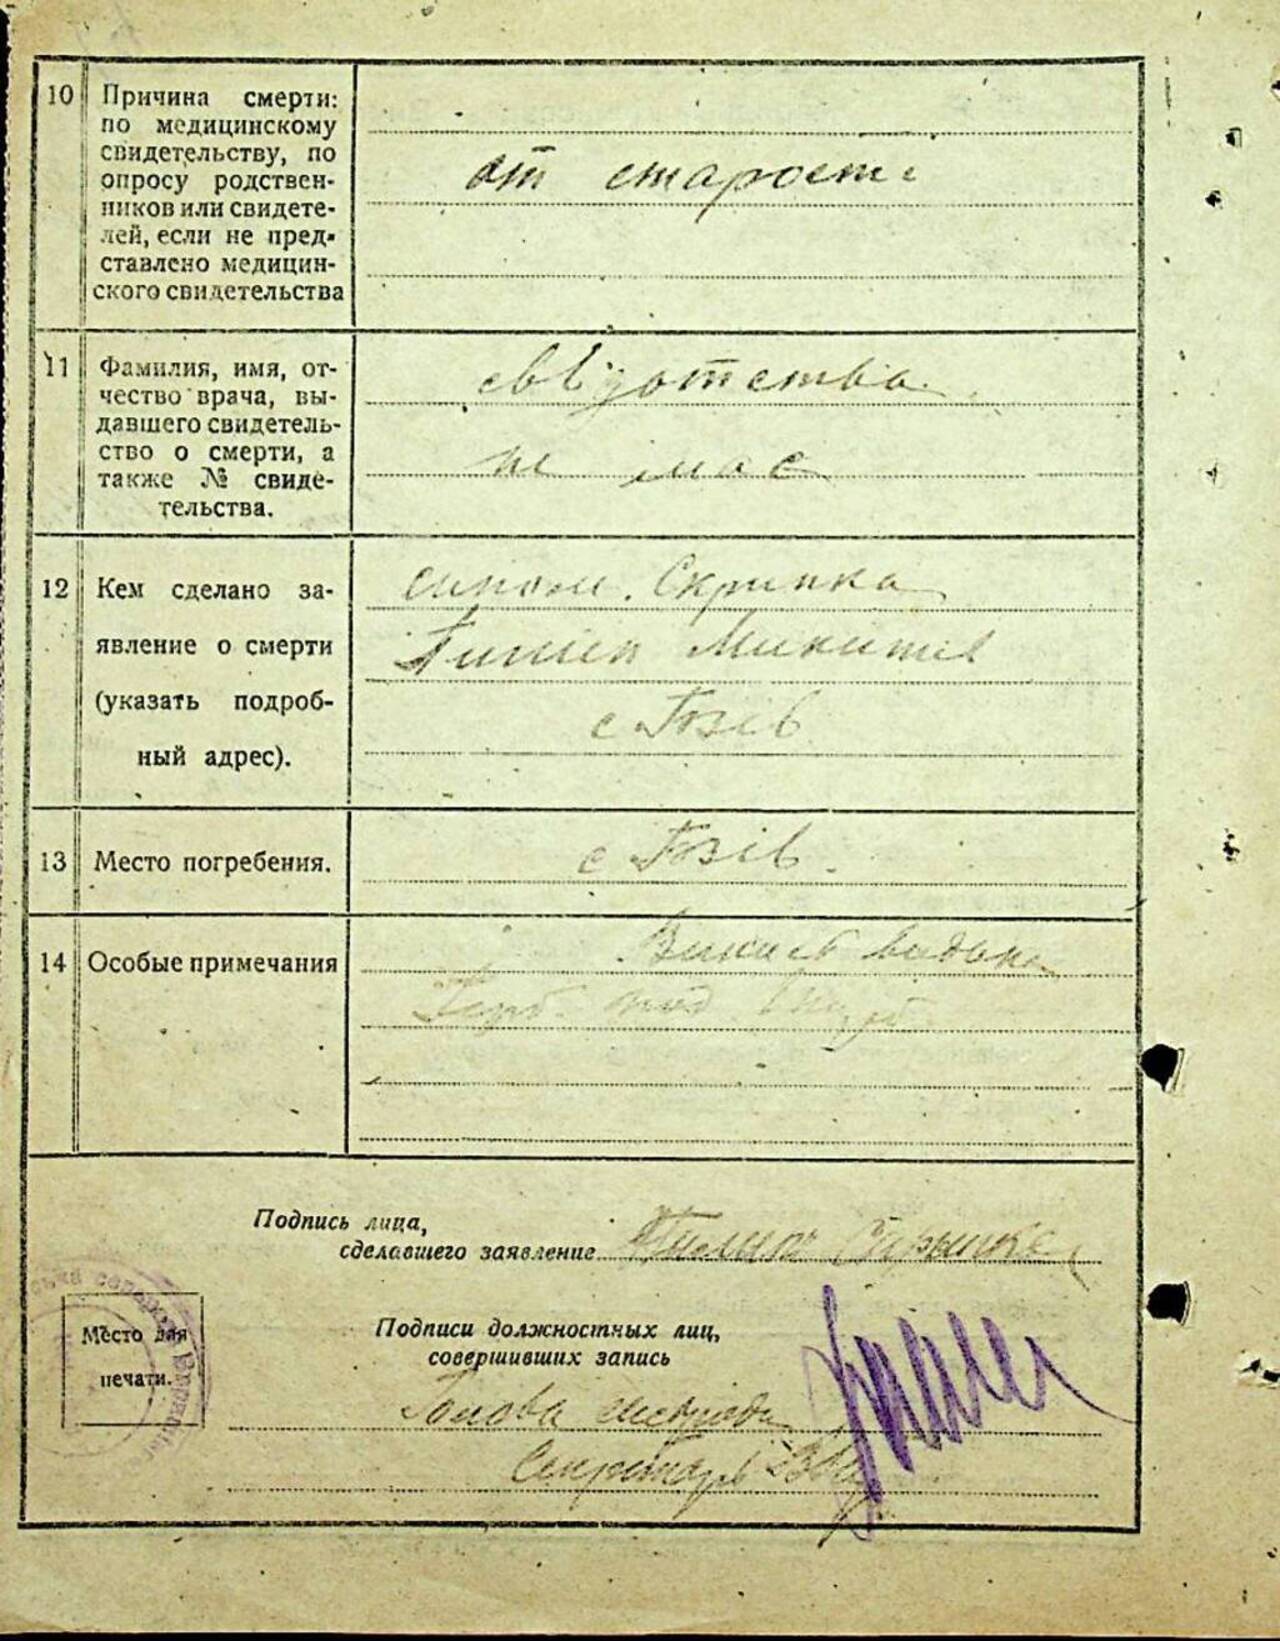 10 Причина смерти:
по медицинскому
свидетельству, по
опросу родствен-
ников или свидете-
лей, если не пред-
ставлено медицин-
ского свидетельства
от старости
11 Фамилия, имя, от-
чество врача, вы-
давшего свидетель-
ство о смерти, а
также № свиде-
тельства.
не має
12 Кем сделано за-
явление о смерти
(указать подроб-
ный адрес).
сином. Скрипка
Пилип
с
13 Место погребения.
с
14 Особые примечания
Подпись лица,
сделавшего заявление
Подписи должностных лиц,
совершивших запись
Место для
печати.
Голова сільради
Секретарь